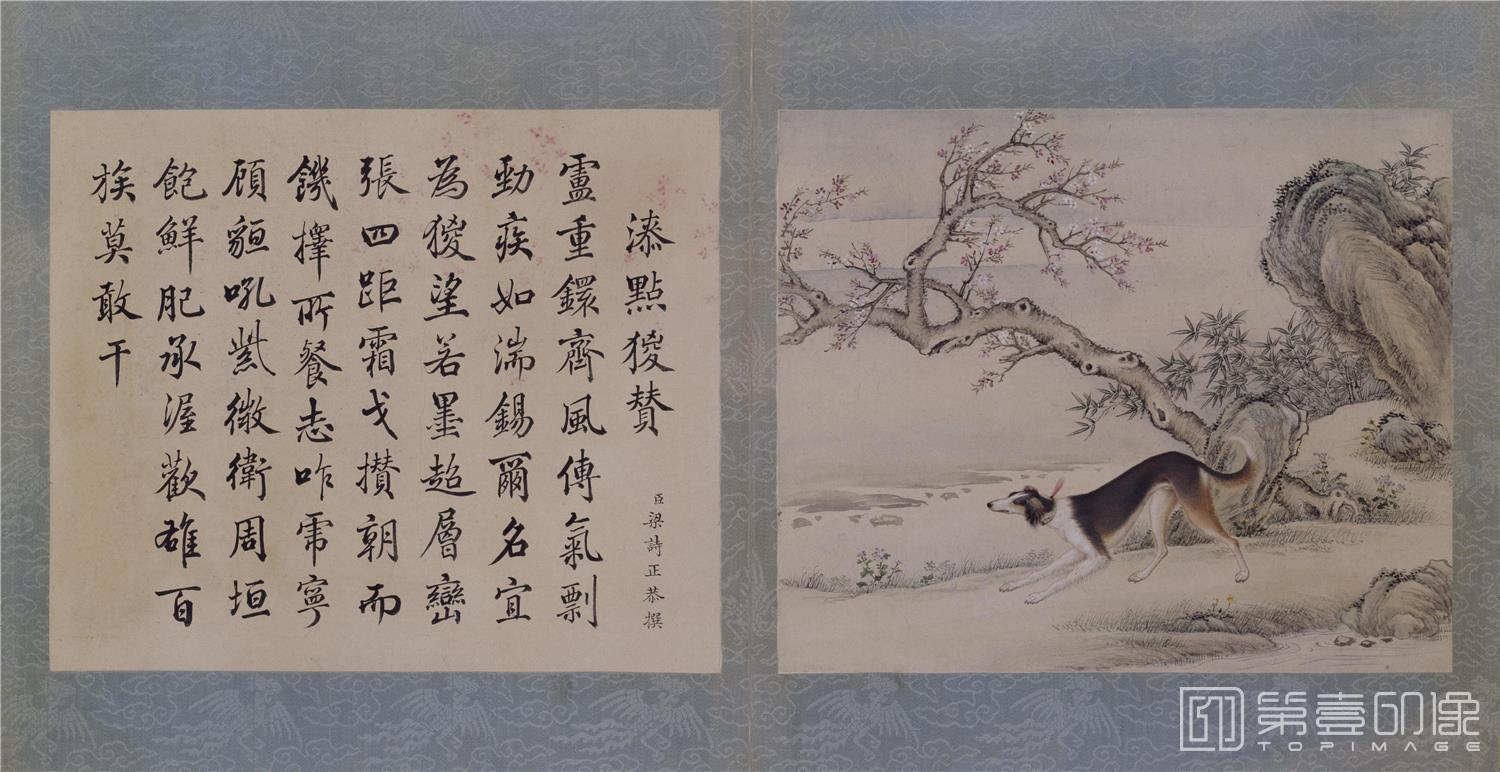 漆點猣賛
臣梁詩正恭撰
盧重鐶齊風傳氣剽
勁疾如湍錫爾名宜
為猣望若墨超層巒
張四距霜戈攢朝而
饑擇所餐志咋乕寧
顧貆吼紫微衛周垣
飽鮮肥承渥歡雄百
族莫敢干
第壹印像
TOPIMAGE